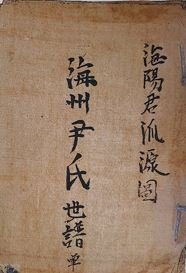 海陽君派源圖
海州尹氏世譜单